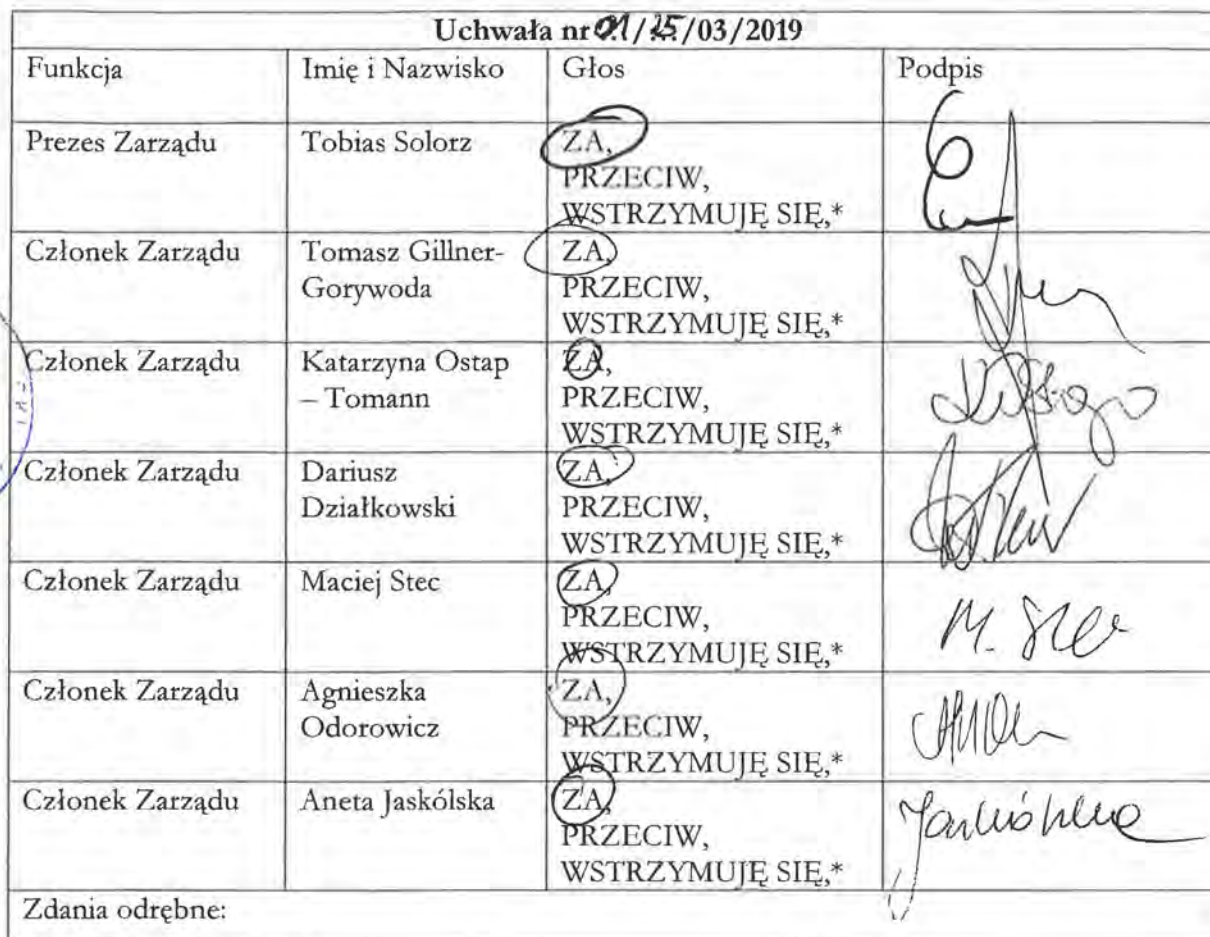 Uchwała nr 01/25/03/2019
Funkcja Imię i Nazwisko Głos Podpis
Prezes Zarządu Tobias Solorz ZA,
PRZECIW,
WSTRZYMUJĘ SIĘ,*
Członek Zarządu Tomasz Gillner- ZA,
Gorywoda PRZECIW,
WSTRZYMUJĘ SIĘ,*
Członek Zarządu Katarzyna Ostap ZA,
– Tomann PRZECIW,
WSTRZYMUJĘ SIĘ,*
Członek Zarządu Dariusz ZA,
Działkowski PRZECIW,
WSTRZYMUJĘ SIĘ,*
Członek Zarządu Maciej Stec ZA,
PRZECIW,
WSTRZYMUJĘ SIĘ,*
M. Stec
Członek Zarządu Agnieszka ZA,
Odorowicz PRZECIW,
WSTRZYMUJĘ SIĘ,*
Członek Zarządu Aneta Jaskólska ZA,
PRZECIW,
WSTRZYMUJĘ SIĘ,*
Jaskólska
Zdania odrębne: